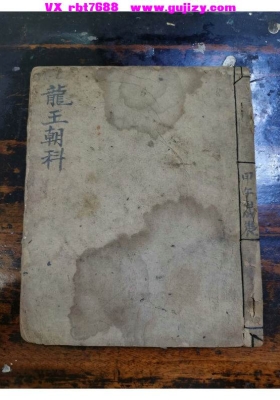 VX rbt7688 www.gujizy.com
龍王朝科